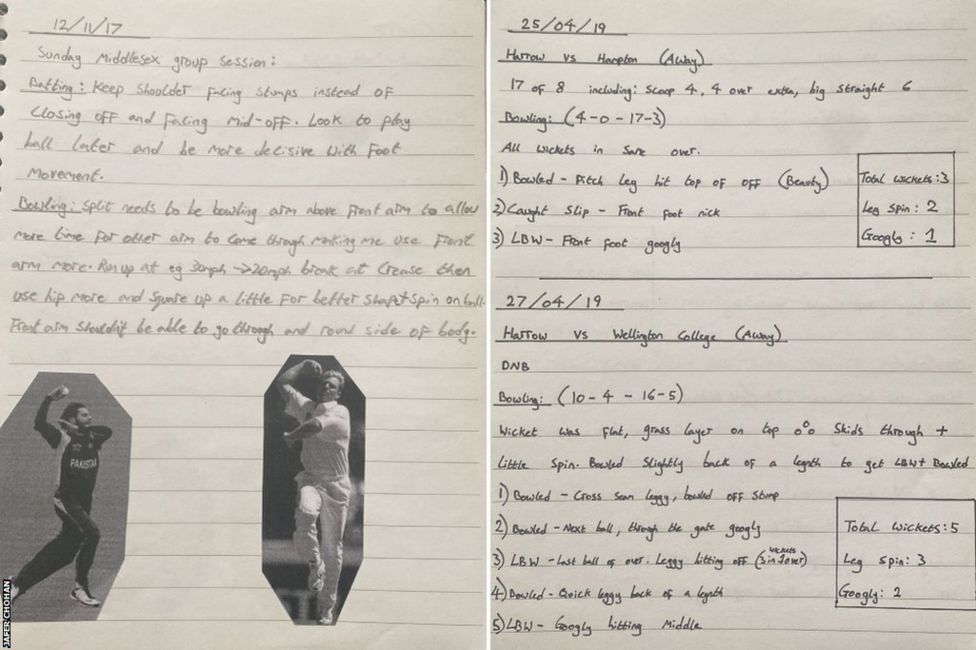 12/11/17
Sunday Middlesex group session:
Batting: Keep shoulder facing stumps instead of
closing off and facing mid-off. Look to play
ball later and be more decisive with foot
movement.
Bowling: Split needs to be bowling arm above front arm to allow
more time for other arm to come through making me use front
arm more. Run up at eg 30mph →20mph break at crease then
use hip more and square up a little for better shape+spin on ball.
Front arm shouldn't be able to go through and round side of body.
PAKISTAN
JAFER CHOHAN
25/04/19
Harrow vs Hampton (Away)
17 of 8 including: scoop 4, 4 over extra, big straight 6
Bowling: (4-0-17-3)
All wickets in same over.
1) Bowled - Pitch leg hit top of off (Beauty)
2) Caught slip - Front foot nick
3) LBW - Front foot googly
Total wickets: 3
Leg spin: 2
Googly: 1
27/04/19
Harrow vs Wellington College (Away)
DNB
Bowling: (10-4-16-5)
Wicket was flat, grass layer on top ∴ Skids through +
little spin. Bowled slightly back of a legnth to get LBW+Bowled
1) Bowled - Cross seam leggy, bowled off stump
2) Bowled - Next ball, through the gate googly
3) LBW - Last ball of over. Leggy hitting off (3 wickets in 1 over)
4) Bowled - Quick leggy back of a legnth
5) LBW - Googly hitting Middle
Total wickets: 5
Leg spin: 3
Googly: 2